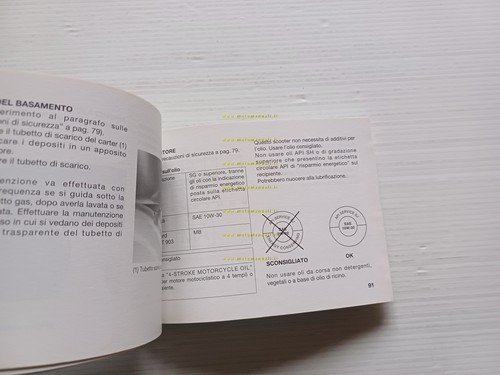 DEL BASAMENTO
erimento al paragrafo sulle
oni di sicurezza" a pag. 79).
e il tubetto di scarico del carter (1)
care i depositi in un apposito
ore.
e il tubetto di scarico.
enzione va effettuata con
requenza se si guida sotto la
tto gas, dopo averla lavata o se
ata. Effettuare la manutenzione
so in cui si vedano dei depositi
trasparente del tubetto di
(1) Tubetto
TORE
recauzioni di sicurezza a pag. 79.
sull'olio
azione
SG o superiore, tranne
gli oli con la indicazione
di risparmio energetico
posta sulla etichetta
circolare API.
SAE 10W-30
ard
T 903
MB
nsigliato
a "4-STROKE MOTORCYCLE OIL"
per motore motociclistico a 4 tempi) o
alente.
Questo scooter non necessita di additivi per
l'olio. Usare l'olio consigliato.
Non usare oli API SH o di gradazione
superiore che presentino la etichetta
circolare API di "risparmio energetico" sul
recipiente.
Potrebbero nuocere alla lubrificazione.
API SERVICE SJ
SAE
10W-30
SCONSIGLIATO
OK
Non usare oli da corsa non detergenti,
vegetali o a base di olio di ricino.
91
www.motomanuali.it